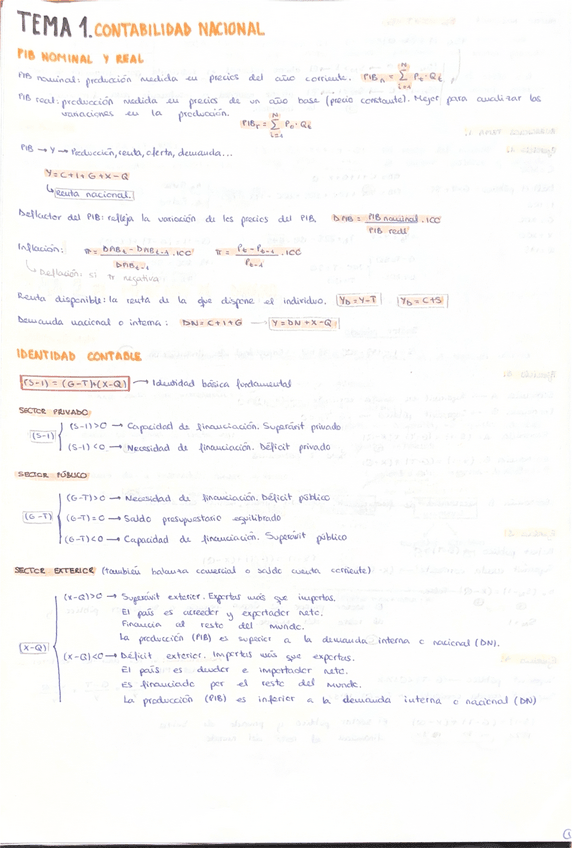 TEMA 1. CONTABILIDAD NACIONAL
PIB NOMINAL Y REAL
PIB nominal: producción medida en precios del año corriente. PIBn = Σ Pt · Qt
PIB real: producción medida en precios de un año base (precio constante). Mejor para analizar las
variaciones en la producción.
PIBr = Σ Po · Qt
PIB → Y → Producción, renta, oferta, demanda...
Y = C + I + G + X - Q
Renta nacional.
Deflactor del PIB: refleja la variación de los precios del PIB. DPIB = PIB nominal / PIB real · 100
Inflación: π = DPIBt - DPIBt-1 / DPIBt-1 · 100 π = Pt - Pt-1 / Pt-1 · 100
Deflación: si π negativa
Renta disponible: la renta de la que dispone el individuo. YD = Y - T YD = C + S
Demanda nacional o interna: DN = C + I + G → Y = DN + X - Q
IDENTIDAD CONTABLE
(S-I) = (G-T) + (X-Q) → Identidad básica fundamental
SECTOR PRIVADO
(S-I)
(S-I) > 0 → Capacidad de financiación. Superávit privado
(S-I) < 0 → Necesidad de financiación. Déficit privado
SECTOR PÚBLICO
(G-T)
(G-T) > 0 → Necesidad de financiación. Déficit público
(G-T) = 0 → Saldo presupuestario equilibrado
(G-T) < 0 → Capacidad de financiación. Superávit público
SECTOR EXTERIOR (también balanza comercial o saldo cuenta corriente)
(X-Q)
(X-Q) > 0 → Superávit exterior. Exportas más que importas.
El país es acreedor y exportador neto.
Financia al resto del mundo.
La producción (PIB) es superior a la demanda interna o nacional (DN).
(X-Q) < 0 → Déficit exterior. Importas más que exportas.
El país es deudor e importador neto.
Es financiado por el resto del mundo.
La producción (PIB) es inferior a la demanda interna o nacional (DN)